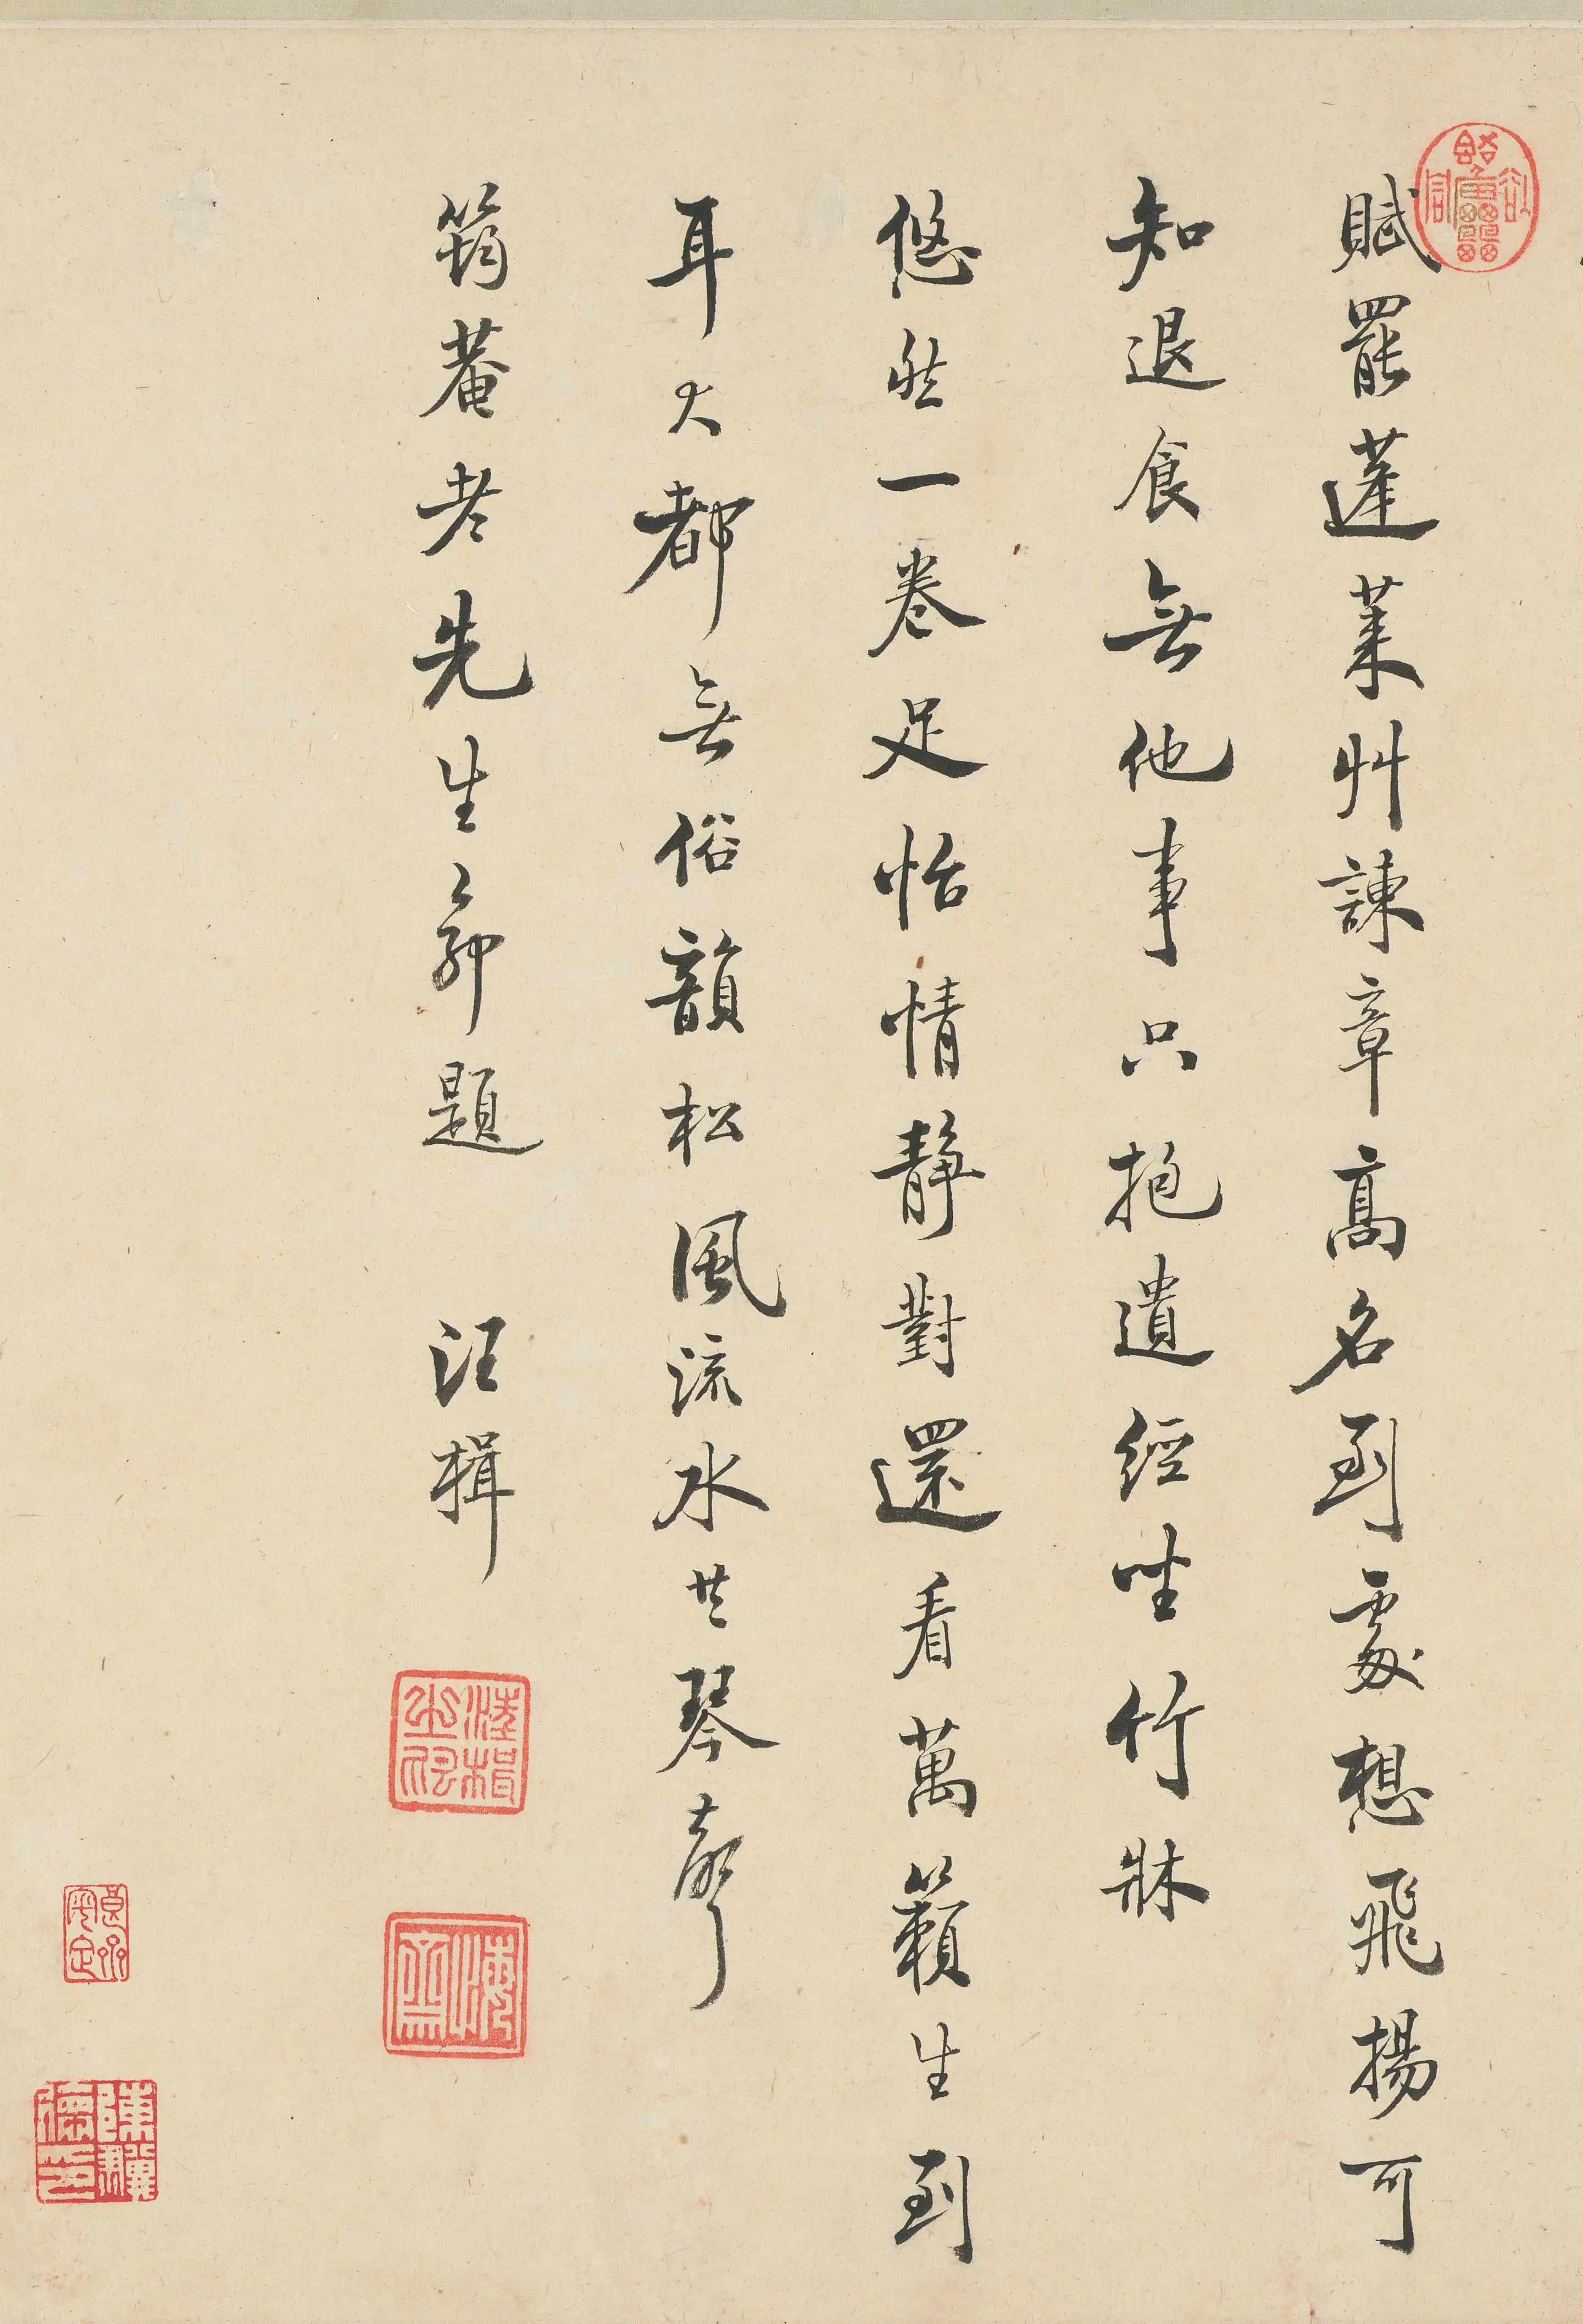 賦罷蓬萊艸諫章高名到處想飛揚可
知退食無他事只抱遺經坐竹牀
悠然一卷足怡情靜對還看萬籟生到
耳大都無俗韻松風流水共琴聲
筠菴老先生命題　汪楫
汪楫之印
悔齋